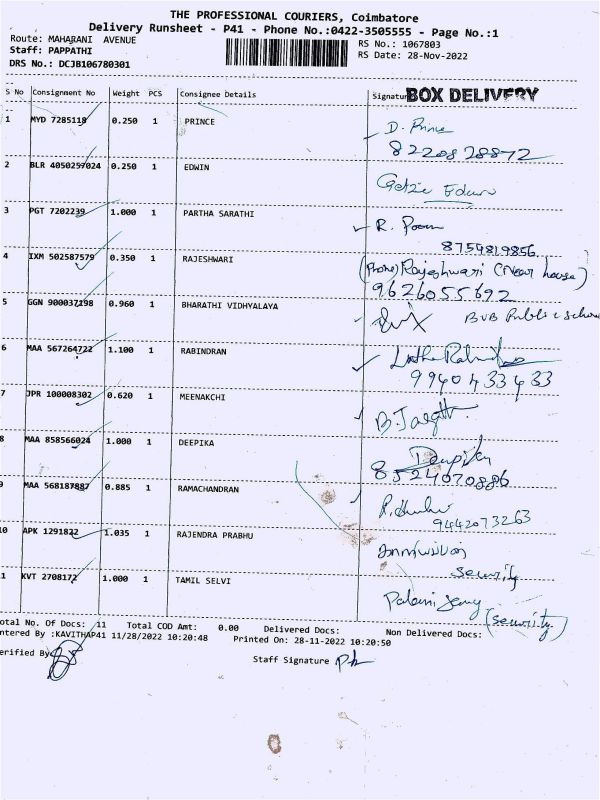 THE PROFESSIONAL COURIERS, Coimbatore
Delivery Runsheet - P41 - Phone No.:0422-3505555 - Page No.:1
Route: MAHARANI AVENUE
Staff: PAPPATHI
DRS No.: DCJB106780301
RS No.: 1067803
RS Date: 28-Nov-2022
S No Consignment No Weight PCS Consignee Details Signatur BOX DELIVERY
1 MYD 7285118 0.250 1 PRINCE D. Prince
8220828872
2 BLR 4050257024 0.250 1 EDWIN Getzie Edwin
3 PGT 7202239 1.000 1 PARTHA SARATHI R.
8754819856
4 IXM 502587579 0.350 1 RAJESHWARI (Phone) Rajeshwari (Near house)
9626055692
5 GGN 900037198 0.960 1 BHARATHI VIDHYALAYA BVB Public
6 MAA 567264722 1.100 1 RABINDRAN
9940433433
7 JPR 100008302 0.620 1 MEENAKCHI B.
8 MAA 858566024 1.000 1 DEEPIKA
8524070886
9 MAA 568187887 0.885 1 RAMACHANDRAN R.
9442073263
10 APK 1291822 1.035 1 RAJENDRA PRABHU
Security
1 KVT 2708172 1.000 1 TAMIL SELVI (Security)
otal No. Of Docs: 11 Total COD Amt: 0.00 Delivered Docs: Non Delivered Docs:
ntered By :KAVITHAP41 11/28/2022 10:20:48 Printed On: 28-11-2022 10:20:50
erified By
Staff Signature